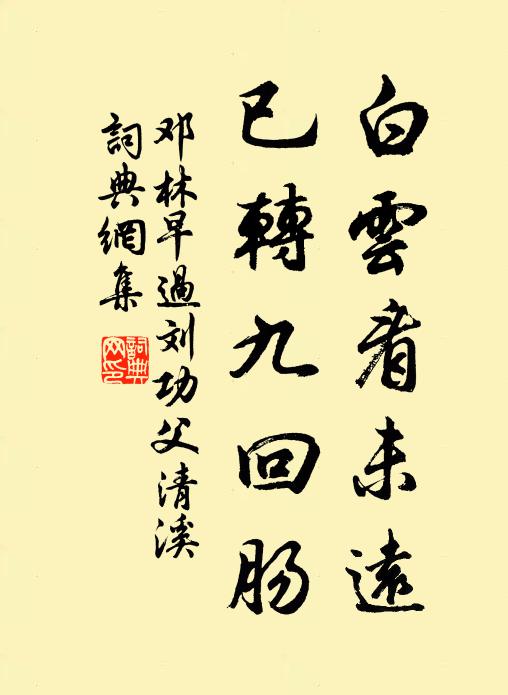 白雲看未遠
已轉九回肠
邓林早過刘功父清溪
詞典網集
詞典网印